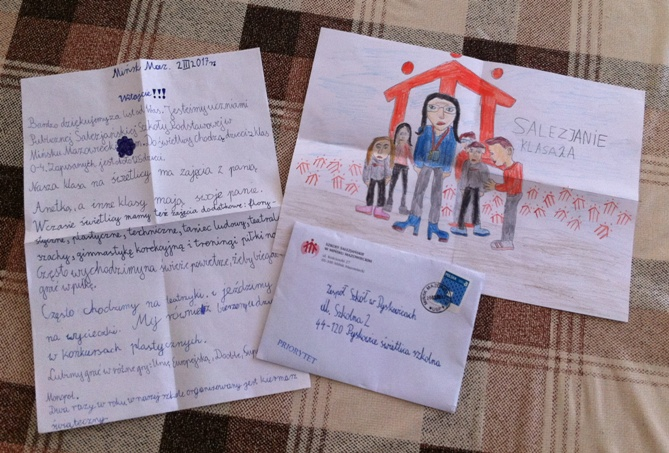 Mińsk Maz. 2 III 2017r.
Witajcie!!!
Bardzo dziękujemy za list od Was. Jesteśmy uczniami
Publicznej Salezjańskiej Szkoły Podstawowej w
Mińsku Mazowieckim. Do świetlicy chodzą dzieci z klas
0-4. Zapisanych jest
Nasza klasa na świetlicy ma zajęcia z panią
Anetką, a inne klasy mają swoje panie.
W czasie świetlicy mamy też zajęcia dodatkowe:
plastyczne, techniczne, taniec ludowy, teatral
szachy, gimnastykę korekcyjną i treningi piłki no
Często wychodzimy na świeże powietrze, żeby
grać w piłkę.
Często chodzimy na teatrzyki i jeździmy
na wycieczki. My również bierzemy udzi
w konkursach plastycznych.
Lubimy grać w różne gry: Unię Europejską, Dobble, Sup
Monopol.
Dwa razy w roku w naszej szkole organizowany jest kiermasz
świąteczny.
SALEZJANIE
KLASA 2A
Zespół Szkół w Pyskowicach
ul. Szkolna 2
44-120 Pyskowice świetlica szkolna
PRIORYTET